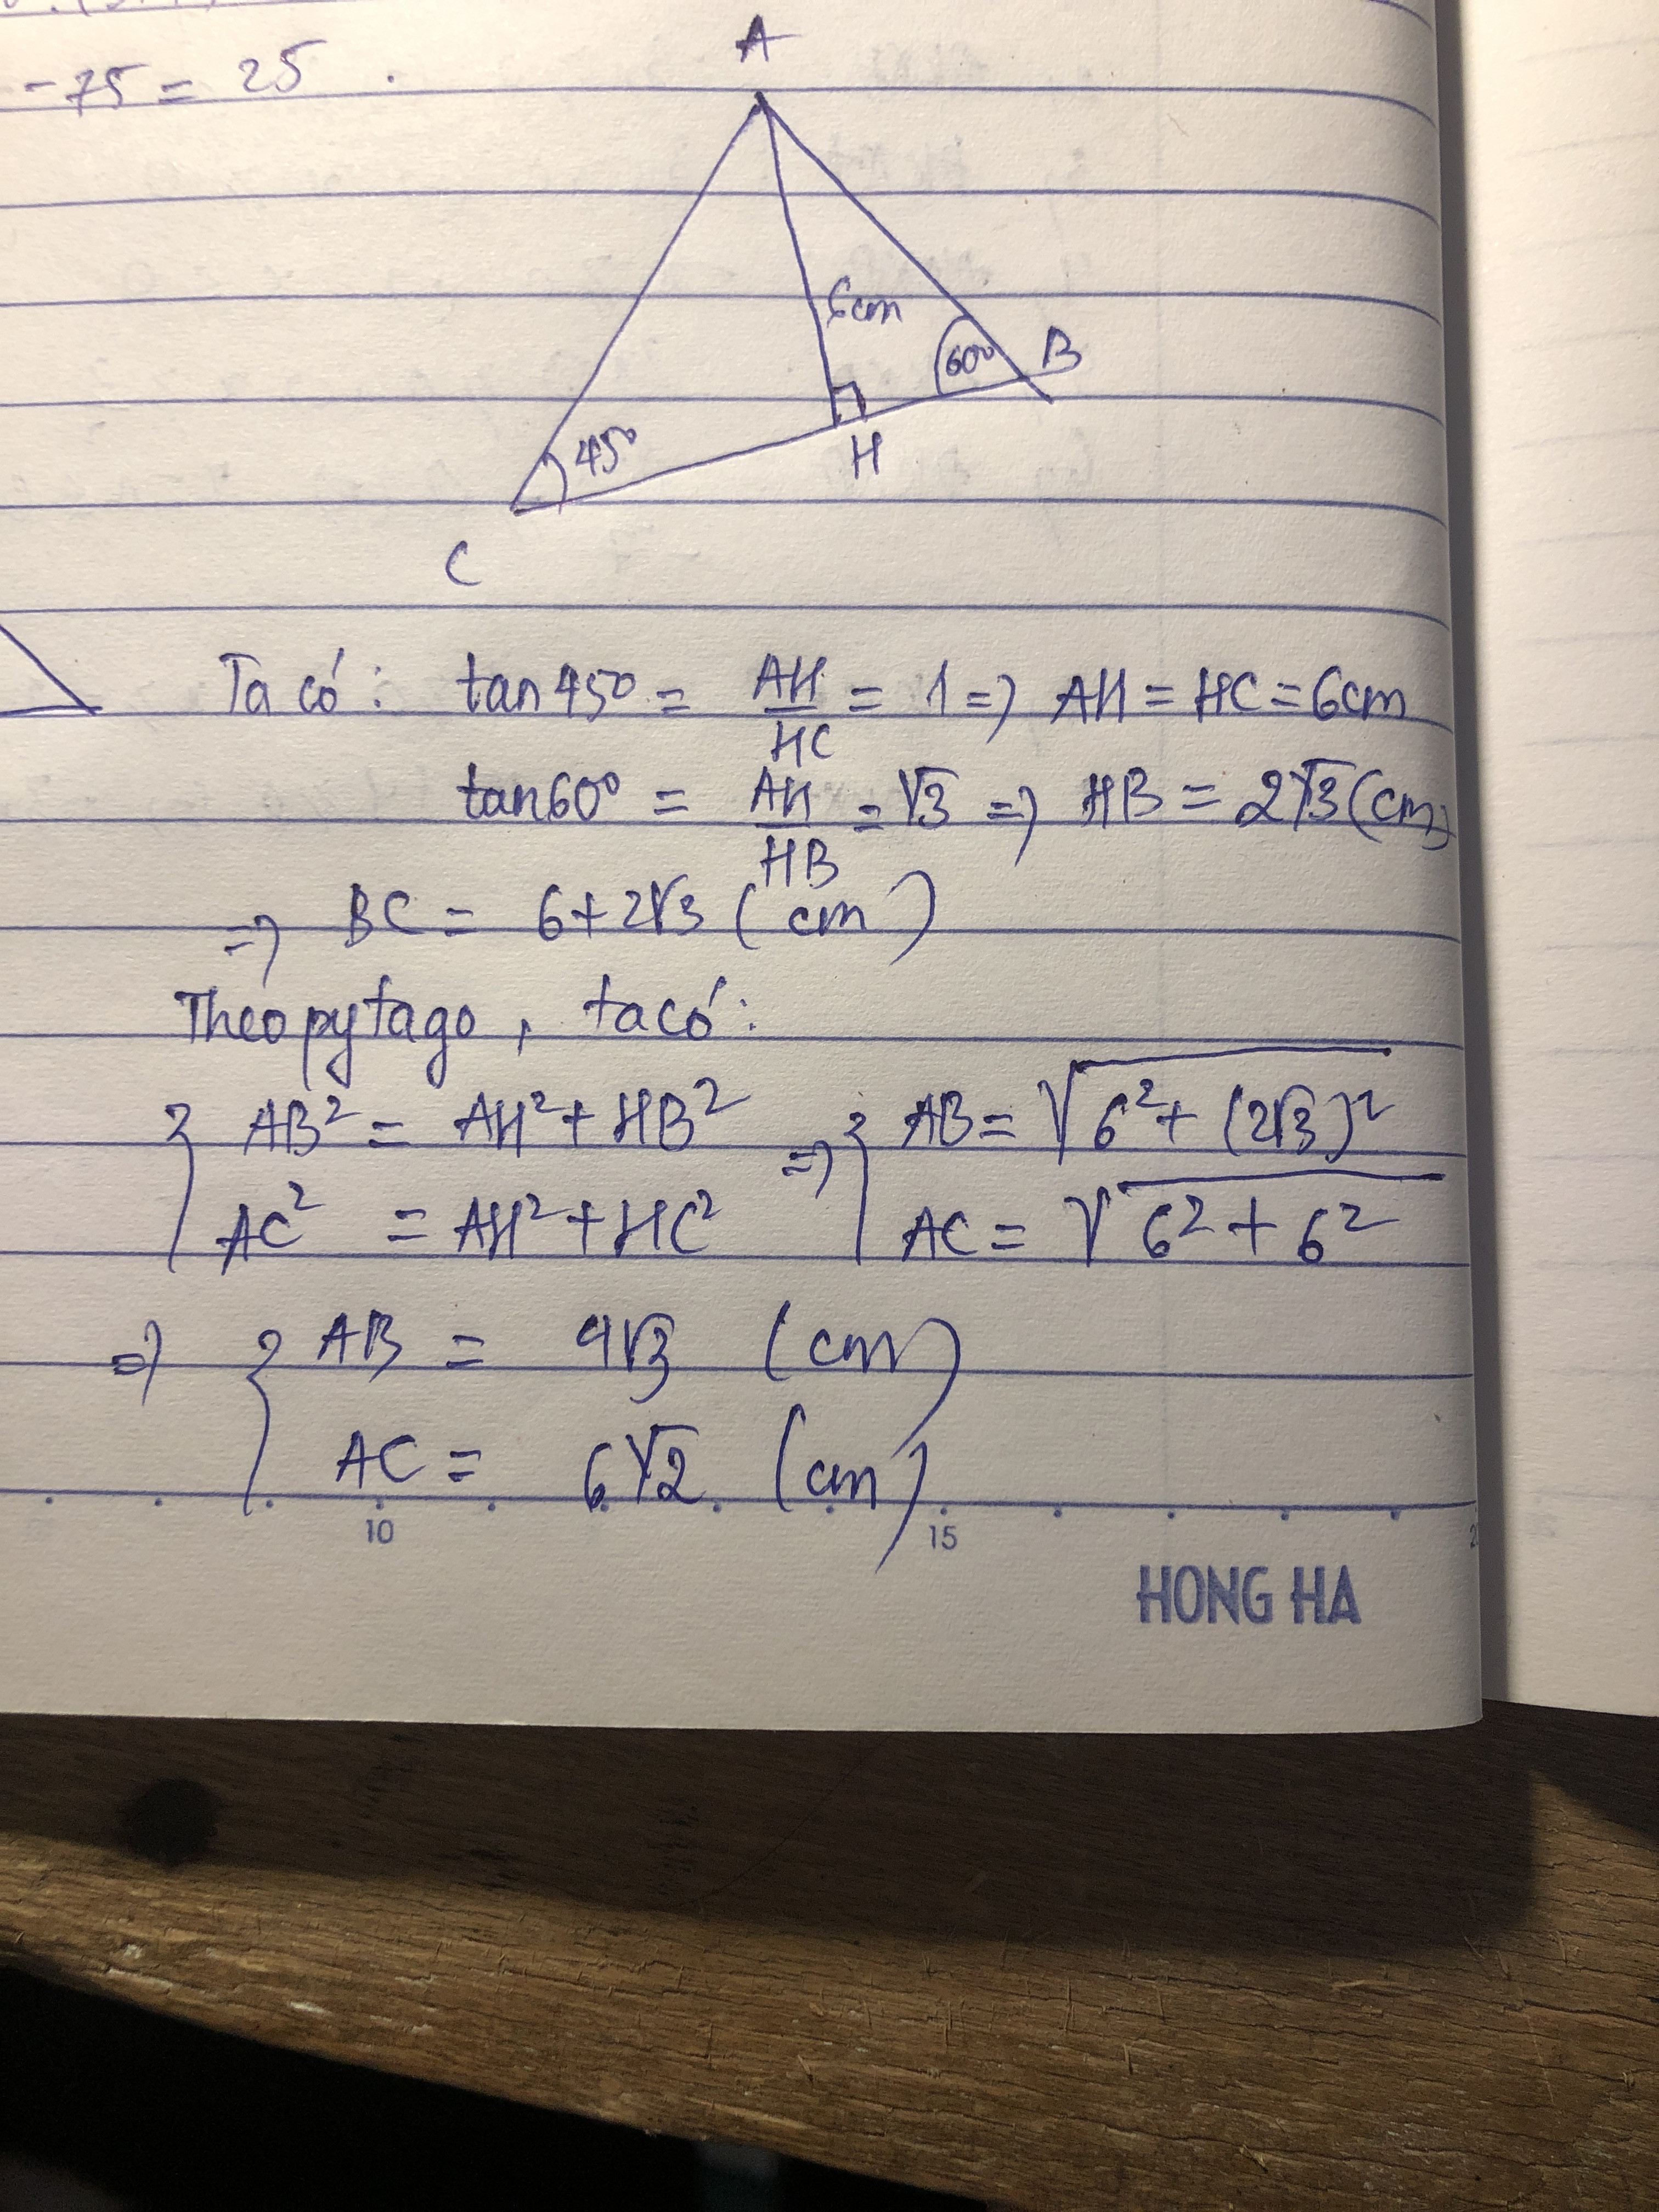 -75 = 25 .
A
6cm
60°
B
45°
H
C
Ta có: tan45° = AH/HC = 1 => AH = HC = 6cm
tan60° = AH/HB = √3 => HB = 2√3 (cm)
=> BC = 6+2√3 (cm)
Theo pytago, ta có:
{ AB² = AH² + HB² => { AB = √(6² + (2√3)²)
AC² = AH² + HC² AC = √(6² + 6²)
=> { AB = 4√3 (cm)
AC = 6√2 (cm)
10 15
HONG HA